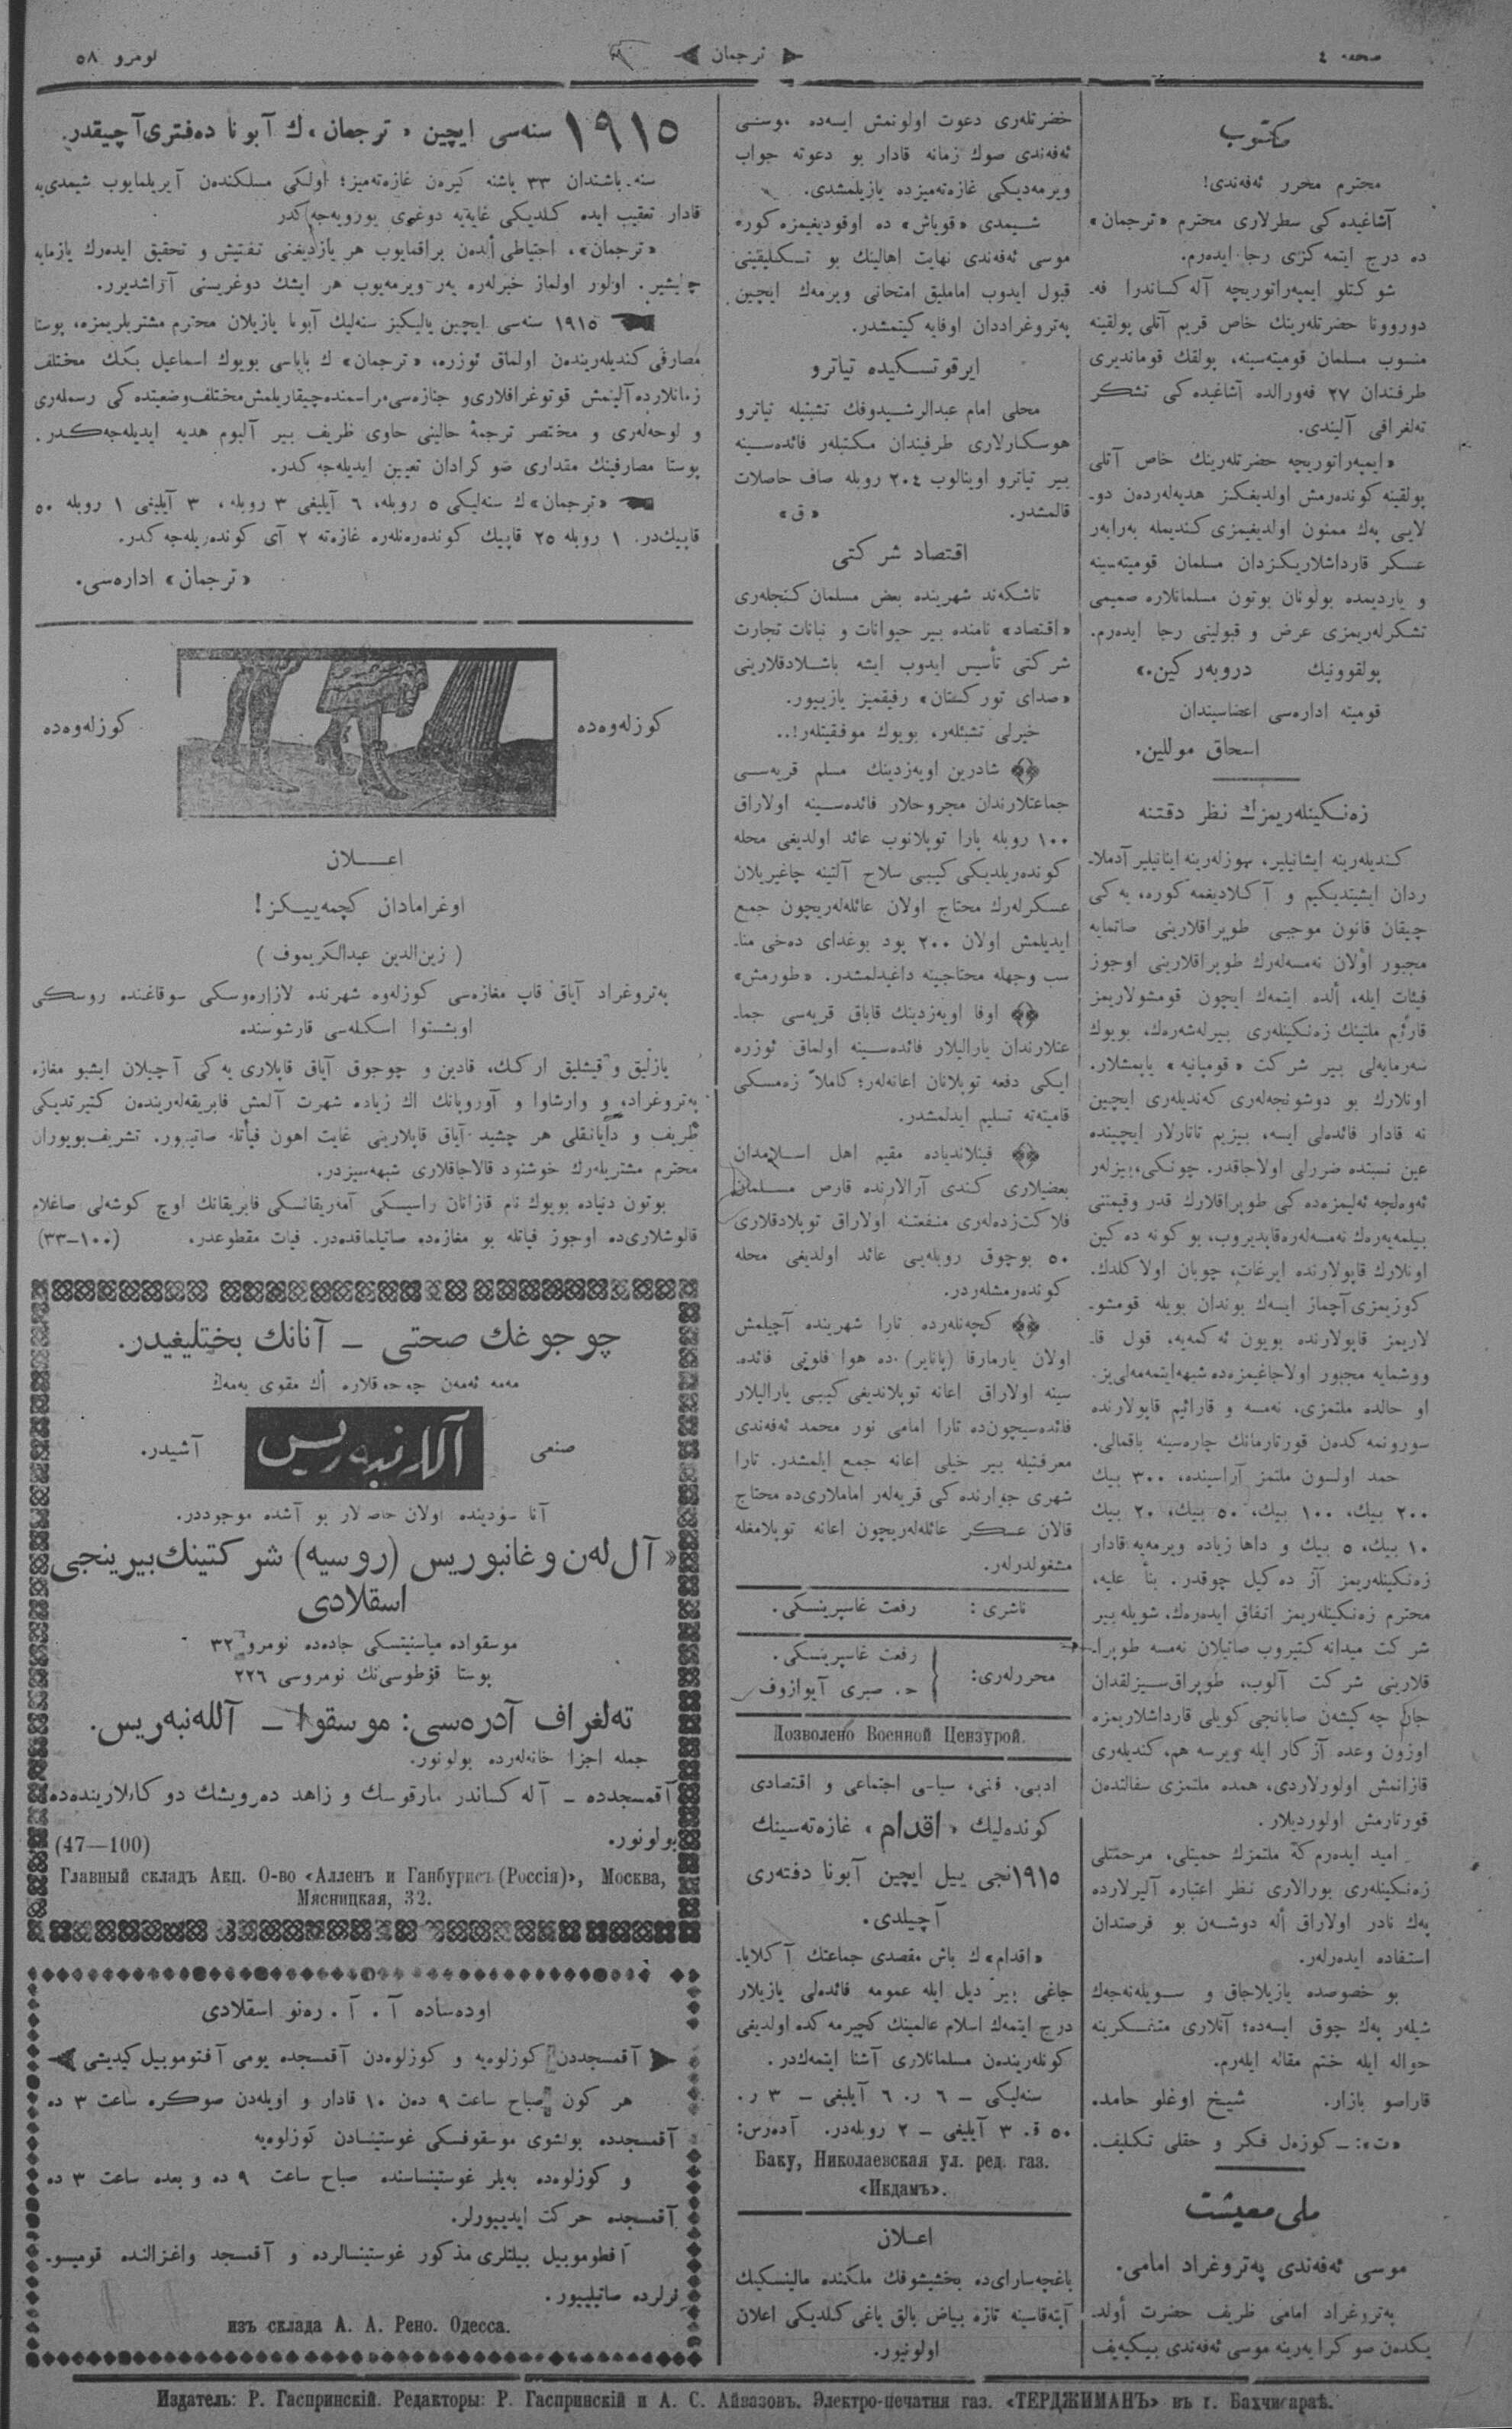 صحفه ٤
ترجمان
نومرو ٥٨
مكتوب
محترم محرر ئەفەندی!
آشاغیده كی سطرلاری محترم «ترجمان»
ده درج ایتمه كزی رجا ایدەرم.
شو كتلو ایمپەراتوریچه آله كساندرا فه‌ـ
دوروونا حضرتلەرینك خاص قریم آتلی پولقینه
منسوب مسلمان قومیتەسینه، پولقك قوماندیری
طرفندان ٢٧ فەورالده آشاغیده كی تشكر
تەلغرافی آلیندی.
«ایمپەراتوریچه حضرتلەرینك خاص آتلی
پولقینه كوندەرمش اولدیغكز هدیەلەردن دو‌ـ
لایی پەك ممنون اولدیغیمزی كندیمله بەرابەر
عسكر قارداشلاریكزدان مسلمان قومیتەسینه
و یاردیمده بولونان بوتون مسلمانلاره صمیمی
تشكرلەریمزی عرض و قبولینی رجا ایدەرم.
پولقوونیك دروبەر كین.»
قومیته ادارەسی اعضاسیندان
اسحاق موللین.
زەنكینلەریمزك نظر دقتنه
كندیلەرینه ایشانیلیر، سوزلەرینه اینانیلیر آدملا‌ـ
ردان ایشیتدیكیم و آ كلادیغمه كوره، یه كی
چیقان قانون موجبی طوپراقلارینی صاتمایه
مجبور اولان نەمسەلەرك طوپراقلارینی اوجوز
فیئات ایله، ألده ایتمەك ایچون قومشولاریمز
قارأیم ملتینك زەنكینلەری بیرلەشەرەك، بویوك
سەرمایەلی بیر شركت «قومپانیه» یاپمشلار.
اونلارك بو دوشونجەلەری كەندیلەری ایچین
نه قادار فائدەلی ایسه، بیزیم تاتارلار ایچینده
عین نسبتده ضررلی اولاجاقدر. چونكی، بیزلەر
ئەوەلجه ئەلیمزده كی طوپراقلارك قدر وقیمتنی
بیلمەیەرەك نەمسەلەره قاپدیروب، بو كونه ده كین
اونلارك قاپولارنده ایرغات، چوبان اولا كلدك.
كوزیمزی آچماز ایسەك بوندان بویله قومشو‌ـ
لاریمز قاپولارنده بویون ئه كمەیه، قول قا‌ـ
ووشمایه مجبور اولاجاغیمزده شبهه ایتمه مەلی یز.
او حالده ملتمزی، نەمسه و قارائیم قاپولارنده
سورونمه كدەن قورتارمانك چارەسینه باقمالی.
حمد اولسون ملتمز آراسینده، ٣٠٠ بیك
٢٠٠ بیك، ١٠٠ بیك، ٥٠ بیك، ٢٠ بیك
١٠ بیك، ٥ بیك و داها زیاده ویرمەیه قادار
زەنكینلەریمز آز ده كیل چوقدر. بنأ علیه،
محترم زەنكینلەریمز اتفاق ایدەرەك، شویله بیر
شركت میدانه كتیروب صاتیلان نەمسه طوپرا‌ـ
قلارینی شركت آلوب، طوپراق سیزلقدان
جان چه كیشەن صابانجی كویلی قارداشلاریمزه
اوزون وعده آز كار ایله ویرسه هم، كندیلەری
قازانمش اولورلاردی، همده ملتمزی سفالتدەن
قورتارمش اولوردیلار.
امید ایدەرم كه ملتمزك حمیتلی، مرحمتلی
زەنكینلەری بورالاری نظر اعتباره آلیرلارده
پەك نادر اولاراق أله دوشەن بو فرصتدان
استفاده ایدەرلەر.
بو خصوصده یازیلاجاق و سویلەنەجەك
شیلەر پەك چوق ایسەده؛ آنلاری متفكرینه
حواله ایله ختم مقاله ایلەرم.
قاراصو بازار. شیخ اوغلو حامد.
«ت»: ـ كوزەل فكر و حقلی تكلیف.
ملی معیشت
موسی ئەفەندی پەتروغراد امامی.
پەتروغراد امامی ظریف حضرت أولد‌ـ
یكدەن صو كرا یەرینه موسی ئەفەندی بیكییەف
حضرتلەری دعوت اولونمش ایسەده موسی
ئەفەندی صوك زمانه قادار بو دعوته جواب
ویرمەدیكی غازەتەمیزده یازیلمشدی.
شیمدی «قویاش» ده اوقودیغیمزه كوره
موسی ئەفەندی نهایت اهالینك بو تكلیفینی
قبول ایدوب اماملیق امتحانی ویرمەك ایچین
پەتروغراددان اوفایه كیتمشدر.
ایرقوتسكیده تیاترو
محلی امام عبدالرشیدوفك تشبثیله تیاترو
هوسكارلاری طرفیندان مكتبلەر فائدەسینه
بیر تیاترو اوینالوب ٢٠٤ روبله صاف حاصلات
قالمشدر. «ق»
اقتصاد شركتی
تاشكەند شهرینده بعض مسلمان كنجلەری
«اقتصاد» نامنده بیر حیوانات و نباتات تجارت
شركتی تأسیس ایدوب ایشه باشلادقلارینی
«صدای توركستان» رفیقمیز یازییور.
خیرلی تشبثلەر، بویوك موفقیتلەر!..
شادرین اویەزدینك مسلم قریەسی
جماعتلارندان مجروحلار فائدەسینه اولاراق
١٠٠ روبله پارا توپلانوب عائد اولدیغی محله
كوندەریلدیكی كیبی سلاح آلتینه چاغیریلان
عسكرلەرك محتاج اولان عائلەلەریچون جمع
ایدیلمش اولان ٢٠٠ پود بوغدای دەخی منا‌ـ
سب وجهله محتاجینه داغیدلمشدر. «طورمش»
اوفا اویەزدینك قاباق قریەسی جما‌ـ
عتلارندان یارالیلار فائدەسینه اولماق ئوزره
ایكی دفعه توپلانان اعانەلەر؛ كاملاً زەمسكی
قامیتەته تسلیم ایدلمشدر.
فینلاندیاده مقیم اهل اسلامدان
بعضیلاری كندی آرالارنده قارص مسلمان
فلاكت زدەلەری منفعتنه اولاراق توپلادقلاری
٥٠ بوچوق روبلەیی عائد اولدیغی محله
كوندەرمشلەردر.
كچەنلەرده تارا شهرینده آچیلمش
اولان یارمارقا (پانایر)ده هوا فلوتی فائده‌ـ
سینه اولاراق اعانه توپلاندیغی كیبی یارالیلار
فائدەسیچون ده تارا امامی نور محمد ئەفەندی
معرفتیله بیر خیلی اعانه جمع ایلمشدر. تارا
شهری جوارنده كی قریەلەر اماملاری ده محتاج
قالان عسكر عائلەلەریچون اعانه توپلامغله
مشغولدرلەر.
ناشری: رفعت غاسپرینسكی.
محررلەری: رفعت غاسپرینسكی.
ح. صبری آیوازوف
Дозволено Военной Цензурой.
ادبی، فنی، سیاسی اجتماعی و اقتصادی
كوندەلیك «اقدام» غازەتەسینك
١٩١٥نجی ییل ایچین آبونا دفتەری
آچیلدی.
«اقدام»ك باش مقصدی جماعتك آ كلایا‌ـ
جاغی بیر دیل ایله عمومه فائدەلی یازیلار
درج ایتمەك اسلام عالمینك كچیرمه كده اولدیغی
كونلەریندەن مسلمانلاری آشنا ایتمەك در.
سنەلیكی ـ ٦ ر. ٦ آیلیغی ـ ٣ ر.
٥٠ ق. ٣ آیلیغی ـ ٢ روبلەدر. آدەرس:
Баку, Николаевская ул. ред. газ.
«Икдамъ».
اعلان
باغچەسرای ده بخشیشوفك ملكنده مالینسكیك
آپتەقاسینه تازه بیاض بالق یاغی كلدیكی اعلان
اولونیور.
١٩١٥ سنەسی ایچین «ترجمان»ك آبونا دەفتری آچیقدر.
سنه باشندان ٣٣ یاشنه كیرەن غازەتەمیز؛ اولكی مسلكندەن آیریلمایوب شیمدی یه
قادار تعقیب ایده كلدیكی غایەیه دوغری یورویەجه كدر
«ترجمان»، احتیاطی ألدەن براقمایوب هر یازدیغنی تفتیش و تحقیق ایدەرك یازمایه
چالیشیر. اولور اولماز خبرلەره یەر ویرمەیوب هر ایشك دوغریسنی آراشدیرر.
١٩١٥ سنەسی ایچین یالیكیز سنەلیك آبونا یازیلان محترم مشتریلریمزه، پوستا
مصارفی كندیلەریندەن اولماق ئوزره، «ترجمان» ك باباسی بویوك اسماعیل بكك مختلف
زمانلارده آلینمش فوتوغرافلاری و جنازەسی مراسمنده چیقاریلمش مختلف وضعیتده كی رسملەری
و لوحەلەری و مختصر ترجمۀ حالینی حاوی ظریف بیر آلبوم هدیه ایدیلەجەكدر.
پوستا مصارفینك مقداری صو كرادان تعیین ایدیلەجه كدر.
«ترجمان»ك سنەلیكی ٥ روبله، ٦ آیلیغی ٣ روبله، ٣ آیلیغی ١ روبله ٥٠
قاپیك در. ١ روبله ٢٥ قاپیك كوندەرەنلەره غازەته ٢ آی كوندەریلەجه كدر.
«ترجمان» ادارەسی.
كوزلەوەده
كوزلەوەده
اعلان
اوغرامادان كچمەییكز!
(زین الدین عبدالكریموف)
پەتروغراد آیاق قاپ مغازەسی كوزلەوه شهرنده لازارەوسكی سوقاغنده روسكی
اوبشستوا اسكلەسی قارشوسنده
یازلیق و قیشلیق ارك، قادین و چوجوق آیاق قاپلاری یه كی آچیلان ایشبو مغازه
پەتروغراد، و وارشاوا و آوروپانك اك زیاده شهرت آلمش فابریقەلەریندەن كتیرتدیكی
ظریف و دایانقلی هر چشید آیاق قاپلارینی غایت اهون فیأتله صاتییور. تشریف بویوران
محترم مشتریلەرك خوشنود قالاجاقلاری شبهەسیزدر.
بوتون دنیاده بویوك نام قازانان راسیسكی آمەریقانسكی فابریقانك اوچ كوشەلی صاغلام
قالوشلاری ده اوجوز فیاتله بو مغازەده صاتیلماقدەدر. فیات مقطوعدر. (١٠٠–٣٣)
چوجوغك صحتی ـ آنانك بختلیغیدر.
مەمه ئەمەن چوجوقلاره أك مقوی یەمەك
صنعی
آللەنبەریس
آشیدر.
آنا سودینده اولان خاصه لار بو آشده موجوددر.
«آل لەن و غانبوریس (روسیه) شركتینك بیرینجی
اسقلادی
موسقواده میاسنیتسكی جادەده نومرو ٣٢
پوستا قوطوسی نك نومروسی ٢٢٦
تەلغراف آدرەسی: موسقوا ـ آللەنبەریس.
جمله اجزا خانەلەرده بولونور.
آقمسجدده ـ آله كساندر مارقوسك و زاهد دەرویشك دوكانلارینده ده
بولونور.
(47—100)
Главный складъ Акц. О-во «Алленъ и Ганбурисъ (Россія)», Москва,
Мясницкая, 32.
اودەساده آ. آ. رەنو اسقلادی
آقمسجددن كوزلوەیه و كوزلوەدن آقمسجده یومی آفتوموبیل كیدیشی
هر كون صباح ساعت ٩ دەن ١٠ قادار و اویلەدن صوكره ساعت ٣ ده
آقمسجدده بولشوی موسقوفسكی غوستینسادن كوزلوەیه
و كوزلوەده بەیلر غوستینساسنده صباح ساعت ٩ ده و بعده ساعت ٣ ده
آقمسجده حركت ایدییورلر.
آفطوموبیل بیلتلری مذكور غوستینسالرده و آقمسجد واغزالنده قومیسو‌ـ
نرلرده صاتیلییور.
изъ склада А. А. Рено. Одесса.
Издатель: Р. Гаспринскій. Редакторы: Р. Гаспринскій и А. С. Айвазовъ. Электро-печатня газ. «ТЕРДЖИМАНЪ» въ г. Бахчисараѣ.